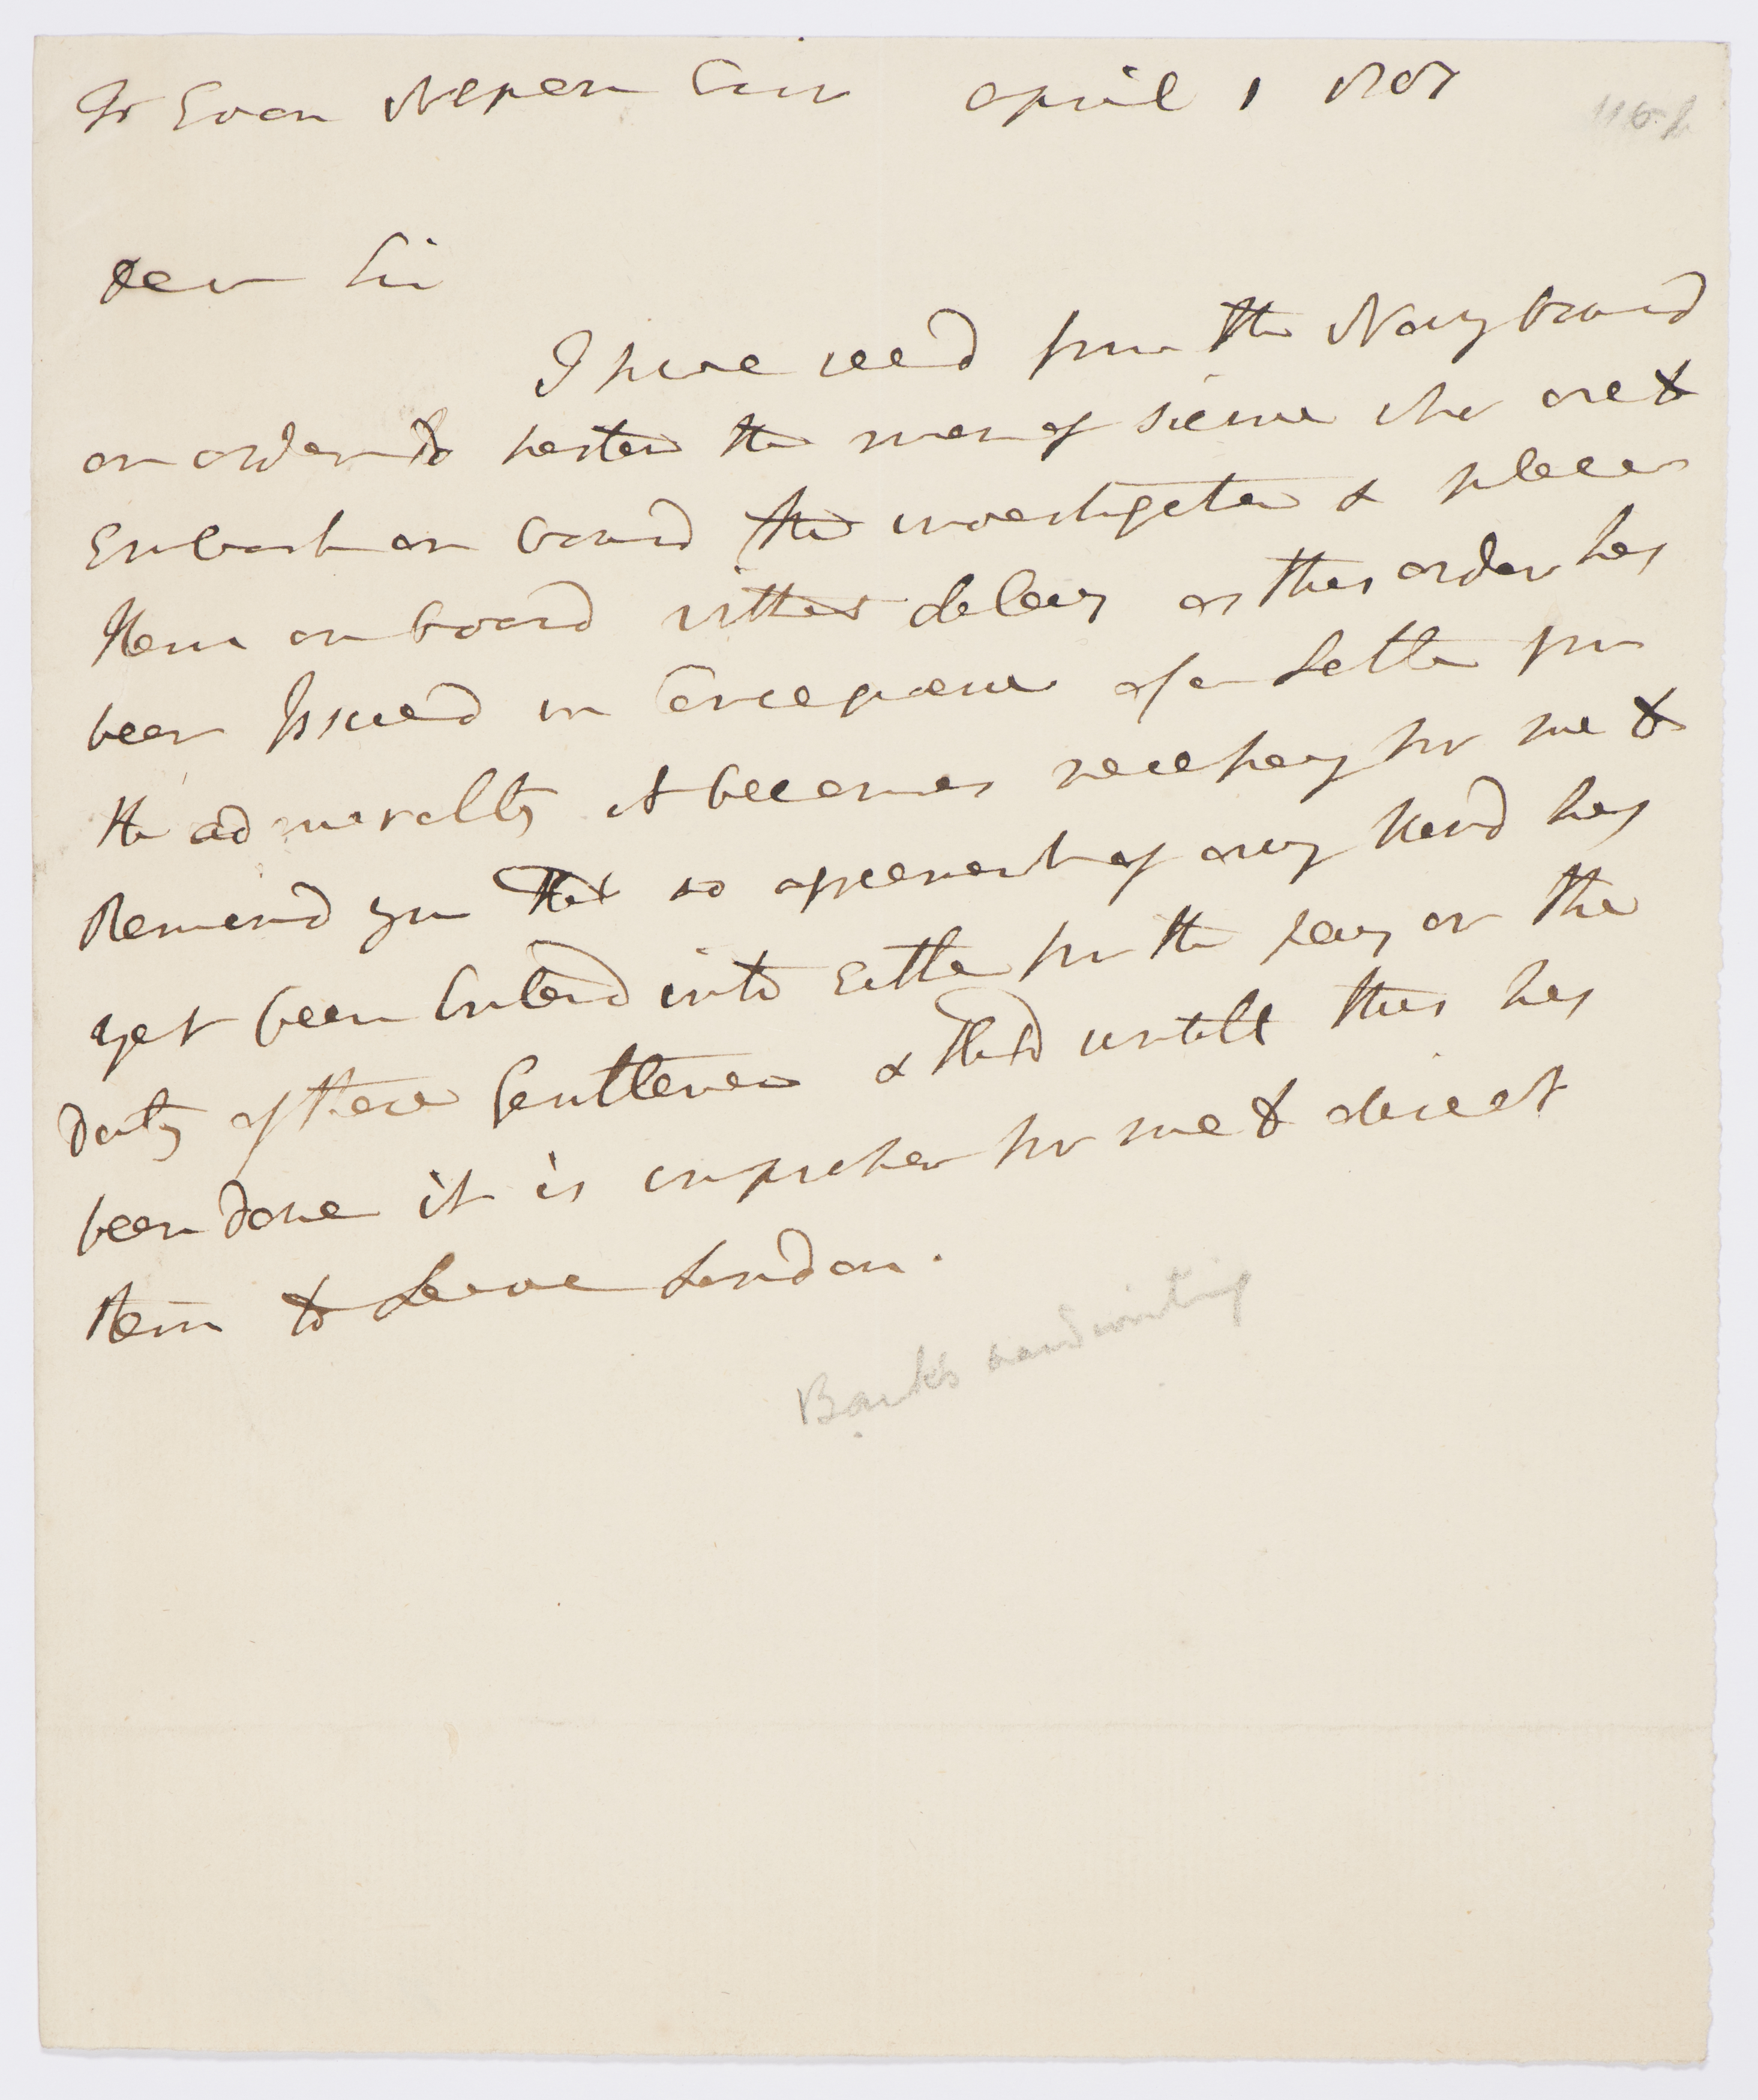 To Evan Nepean Esqr April 1 1801
Dear Sir
I have recd from the Navy board
an order to hasten the men of science who are to
Embark on board the investigator & place
them on board without delay as this order has
been Issued in Consequence of a Letter from
the admiralty it becomes necessary for me to
Remind you that no agreement of any kind has
yet been Enterd into Either for the pay or the
Duty of these Gentlemen & that untill this has
been done it is improper for me to direct
them to Leave London.
Banks handwriting